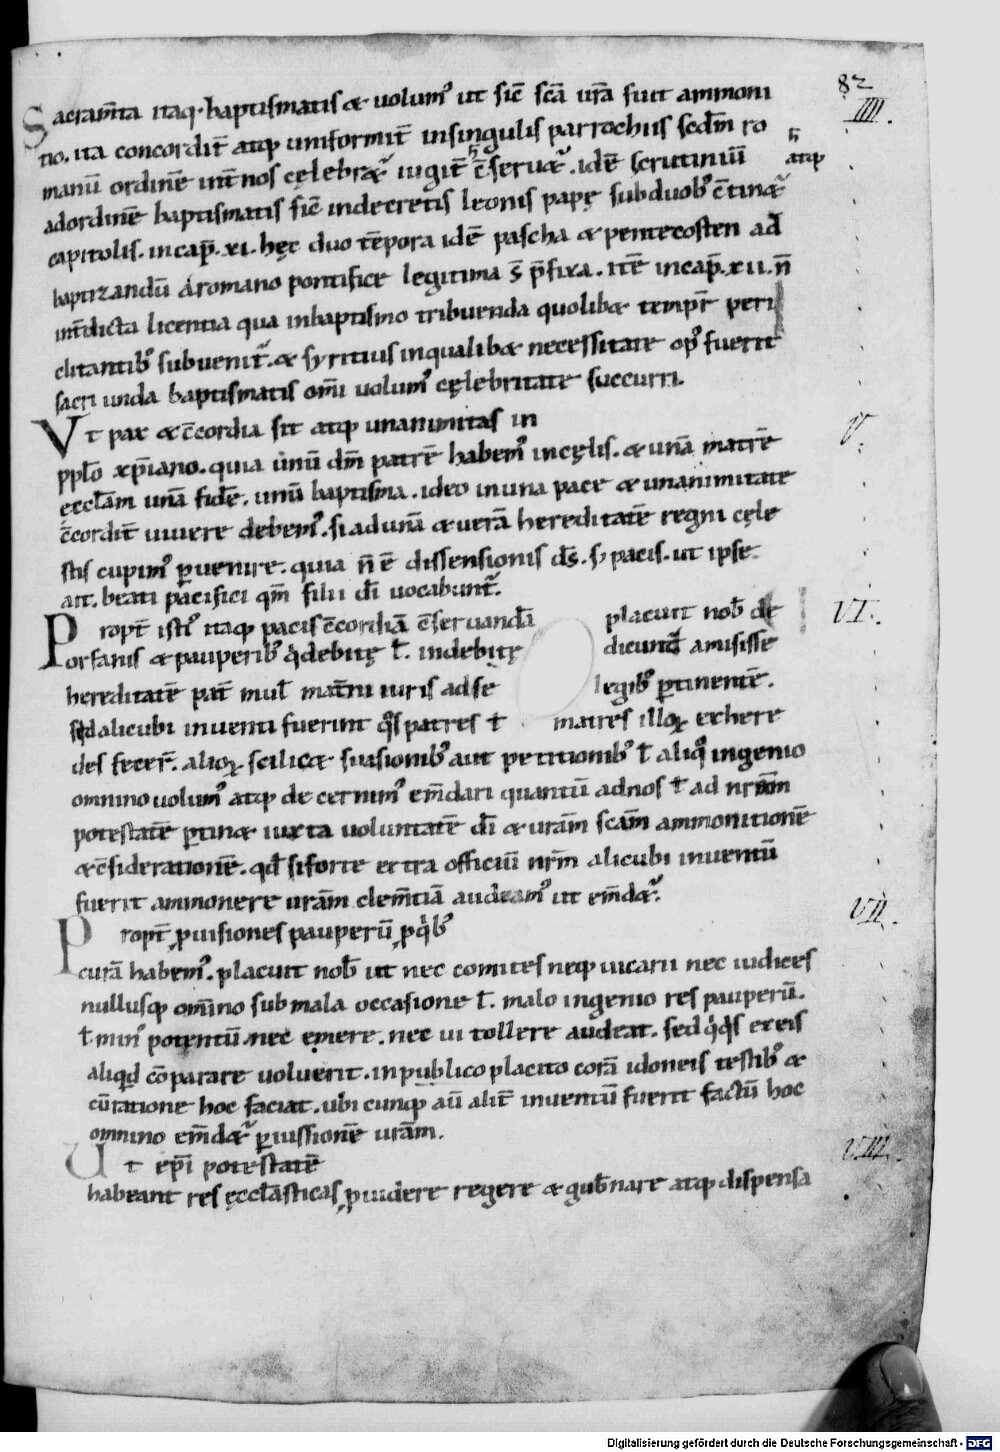 82
IIII.
Sacram̄ta itaq· baptismatis & uolum᾽ ut sic̄ sc̄a ur̄a fuit ammoni
tio. ita concordit̄ atq; uniformit̄ insingulis parrochiis sed̄m ro
manū ordinē int̄ nos cęlebret᾽ iugit̄ c̄seruet᾽. idē scrutiniū atq;
adordinē baptismatis sic̄ indecretis leonis papę subduob᾽ c̄tinet᾽
capitolis. incap̄. xi. hęc duo tēpora idē pascha & pentecosten ad
baptizandū aromano pontifice legitima s̄ p̄fixa. itē incap̄. xii. n̄
int̄dicta licentia qua inbaptismo tribuenda quolib& tempr̄ peri
clitantib᾽ subuenit᾽. & syritius inqualib& necessitate op᾽ fuerit
sacri unda baptismatis om̄i uolum᾽ cęlebritate succurri.
V.
Vt pax & c̄cordia sit atq; unanimitas in
pplō xp̄iano. quia unū dm̄ patrē habem᾽ incęlis. & unā matrē
eccłam unā fidē. unū baptisma. ideo inuna pace & unanimitate
c̄cordit̄ uiuere debem᾽. si adunā & uerā hereditatē regni cęle
stis cupim᾽ puenire. quia n̄ ē dissensionis ds̄. s; pacis. ut ipse
ait. beati pacifici qm̄ filii dī uocabunt᾽.
VI.
Propt̄ isti᾽ itaq; pacis c̄cordiā c̄seruandā placuit nob̄ de
orfanis & pauperib᾽ q̇ debitę ł. indebitę dicunt᾽ amisisse
hereditatē pat̄ni muł mat̄ni iuris adse legib᾽ ptinentē.
sed alicubi inuenti fuerint q̊s patres ł matres illoꝝ exhere
des fecer̄. alioꝝ scilic& suasionib᾽ aut petitionib᾽ ł aliq᾽ ingenio
omnino uolum᾽ atq; decernim᾽ em̄dari quantū adnos ł ad nr̄am
potestatē ptin& iuxta uoluntatē dī & urām scām ammonitionē
& c̄siderationē. qd̄ siforte extra officiū nr̄m alicubi inuentū
fuerit ammonere urām clem̄tiā audeam᾽ ut em̄det᾽.
VII.
Propt̄ puisiones pauperū p q̇b᾽
curā habem᾽. placuit nob̄ ut nec comites neq; uicarii nec iudices
nullusq; om̄ino sub mala occasione ł. malo ingenio res pauperū.
ł min᾽ potentū. nec emere. nec ui tollere audeat. sed q̇q̇s ex eis
aliquid c̄parare uoluerit. inpublico placito corā idoneis testib᾽ &
cū ratione hoc faciat. ubi cunq; aū alit̄ inuentū fuerit factū hoc
omnino em̄det᾽ p iussionē urām.
VIII.
Ut ep̄i potestatē
habeant res ęcclāsticas puidere regere & gub̄nare atq; dispensa
Digitalisierung gefördert durch die Deutsche Forschungsgemeinschaft - DFG